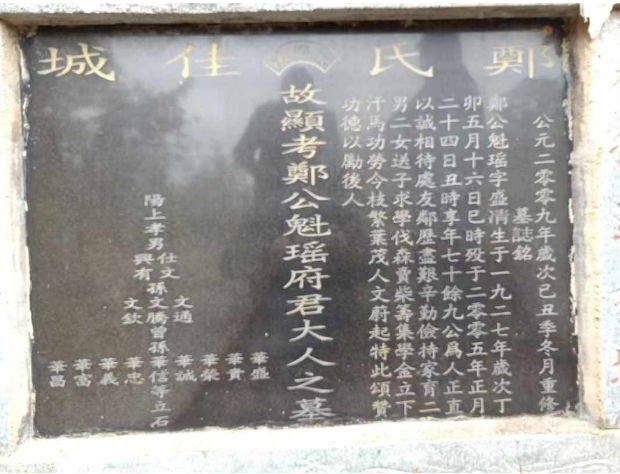 鄭氏佳城
公元二零零九年歲次己丑季冬月重修
墓誌銘
鄭公魁瑤字盛清生于一九二七年歲次丁
卯五月十六日巳時殁于二零零五年正月
二十四日丑時享年七十餘九公爲人正直
以誠相待處友鄰歷盡艱辛勤儉持家育二
男二女送子求學伐森賣柴籌集學金立下
汗馬功勞今枝繁葉茂人文蔚起特此頌贊
功德以勵後人
故顯考鄭公魁瑤府君大人之墓
華盛
華貴
華榮
文通 華誠
陽上孝男仕文 興有 孫文騰曾孫華信等立石
文欽 華忠
華義
華富
華昌